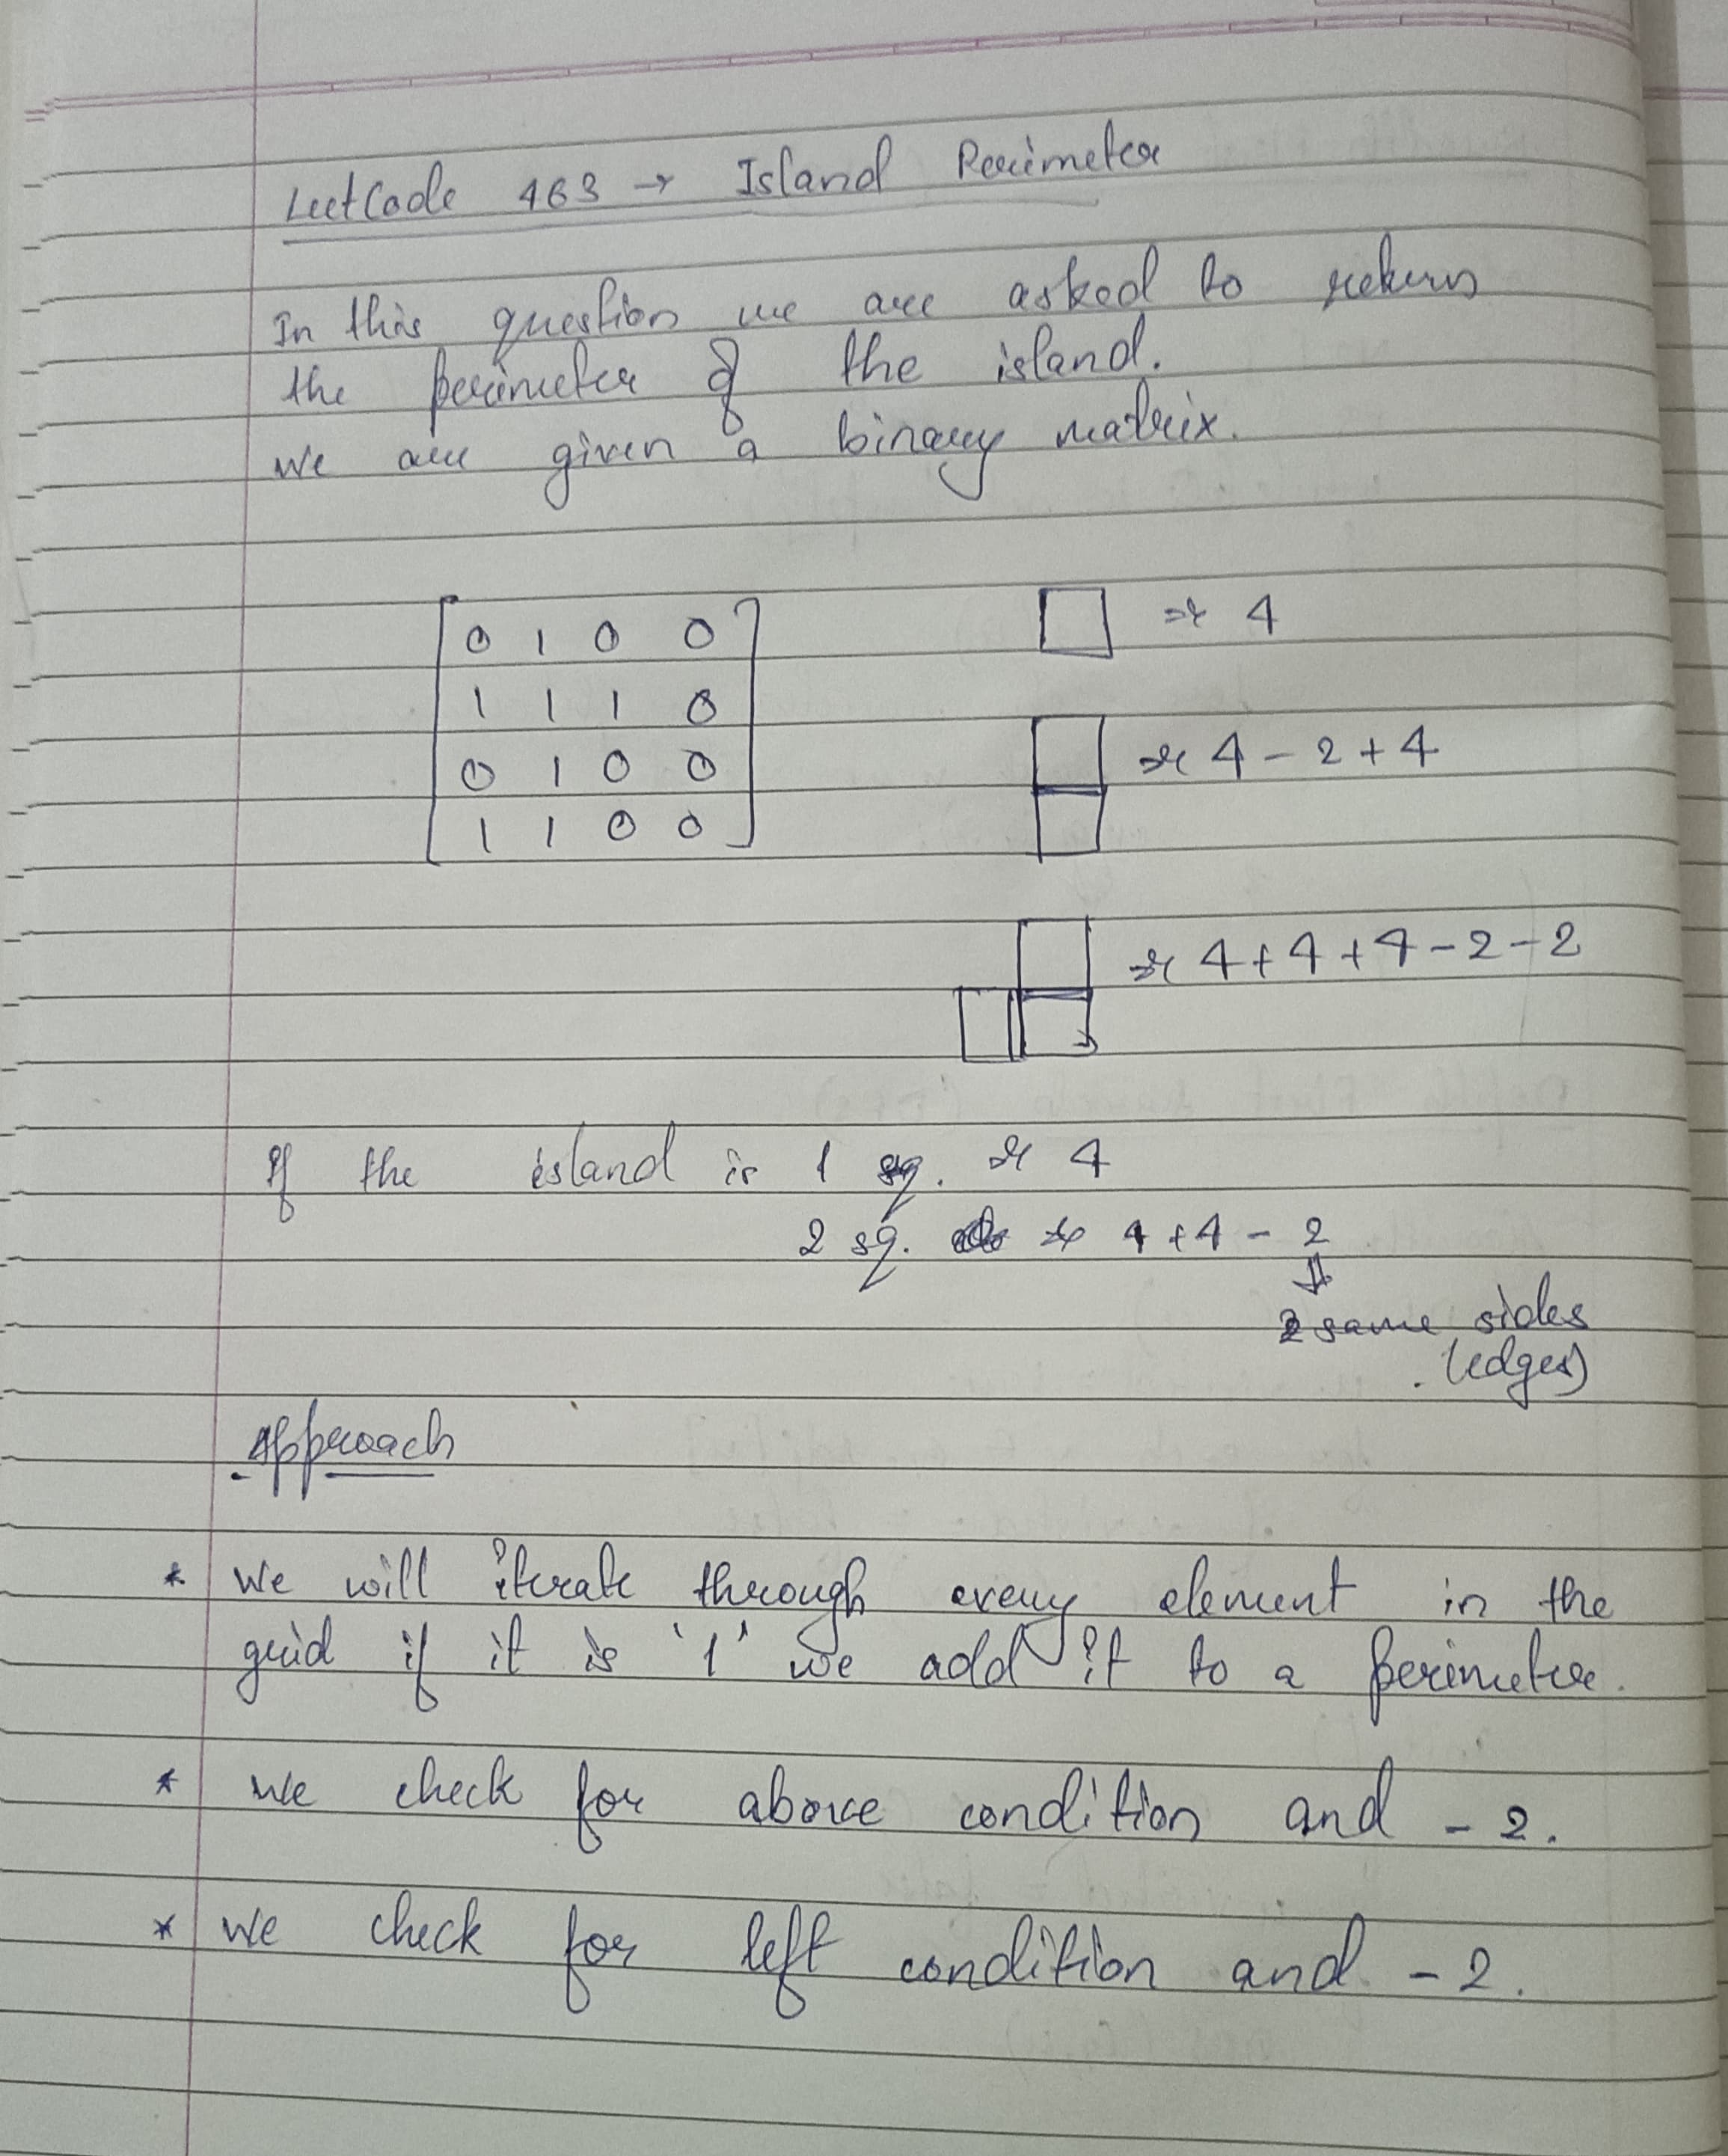 LeetCode 463 → Island Perimeter
In this question we are asked to return
the perimeter of the island.
We are given a binary matrix.
0 1 0 0
1 1 1 0
0 1 0 0
1 1 0 0
⇒ 4
⇒ 4 - 2 + 4
⇒ 4 + 4 + 4 - 2 - 2
If the island is 1 sq. ⇒ 4
2 sq. ⇒ 4 + 4 - 2
⇓
2 same sides
(edges)
Approach
* We will iterate through every element in the
grid if it is '1' we add it to a perimeter.
* We check for above condition and - 2.
* We check for left condition and - 2.